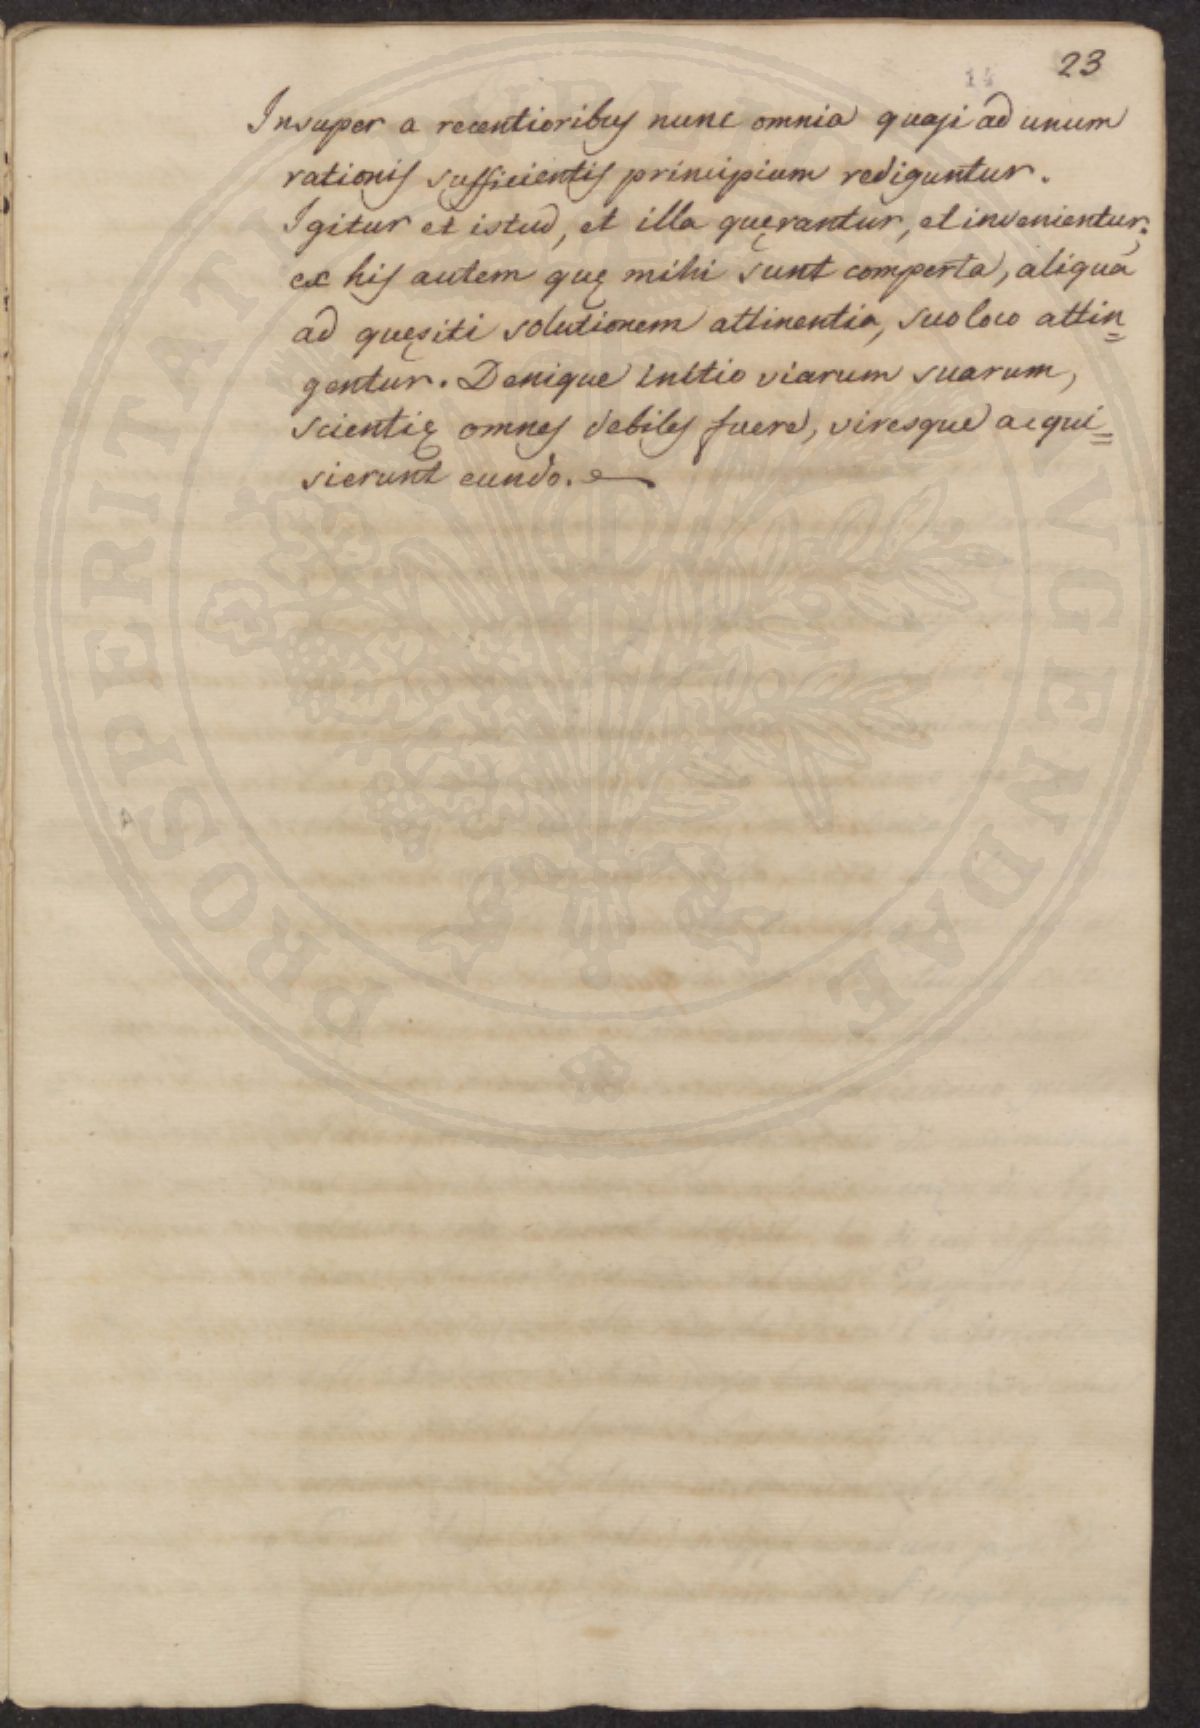 23
14
Insuper a recentioribus nunc omnia quasi ad unum
rationis sufficientis principium rediguntur.
Igitur et istud, et illa quęrantur, et invenientur;
ex his autem quę mihi sunt comperta, aliqua
ad quęsiti solutionem attinentia, suo loco attin=
gentur. Denique initio viarum suarum,
scientię omnes debiles fuere, viresque acqui=
sierunt eundo.
PROSPERITATI PVBLICAE AVGENDAE